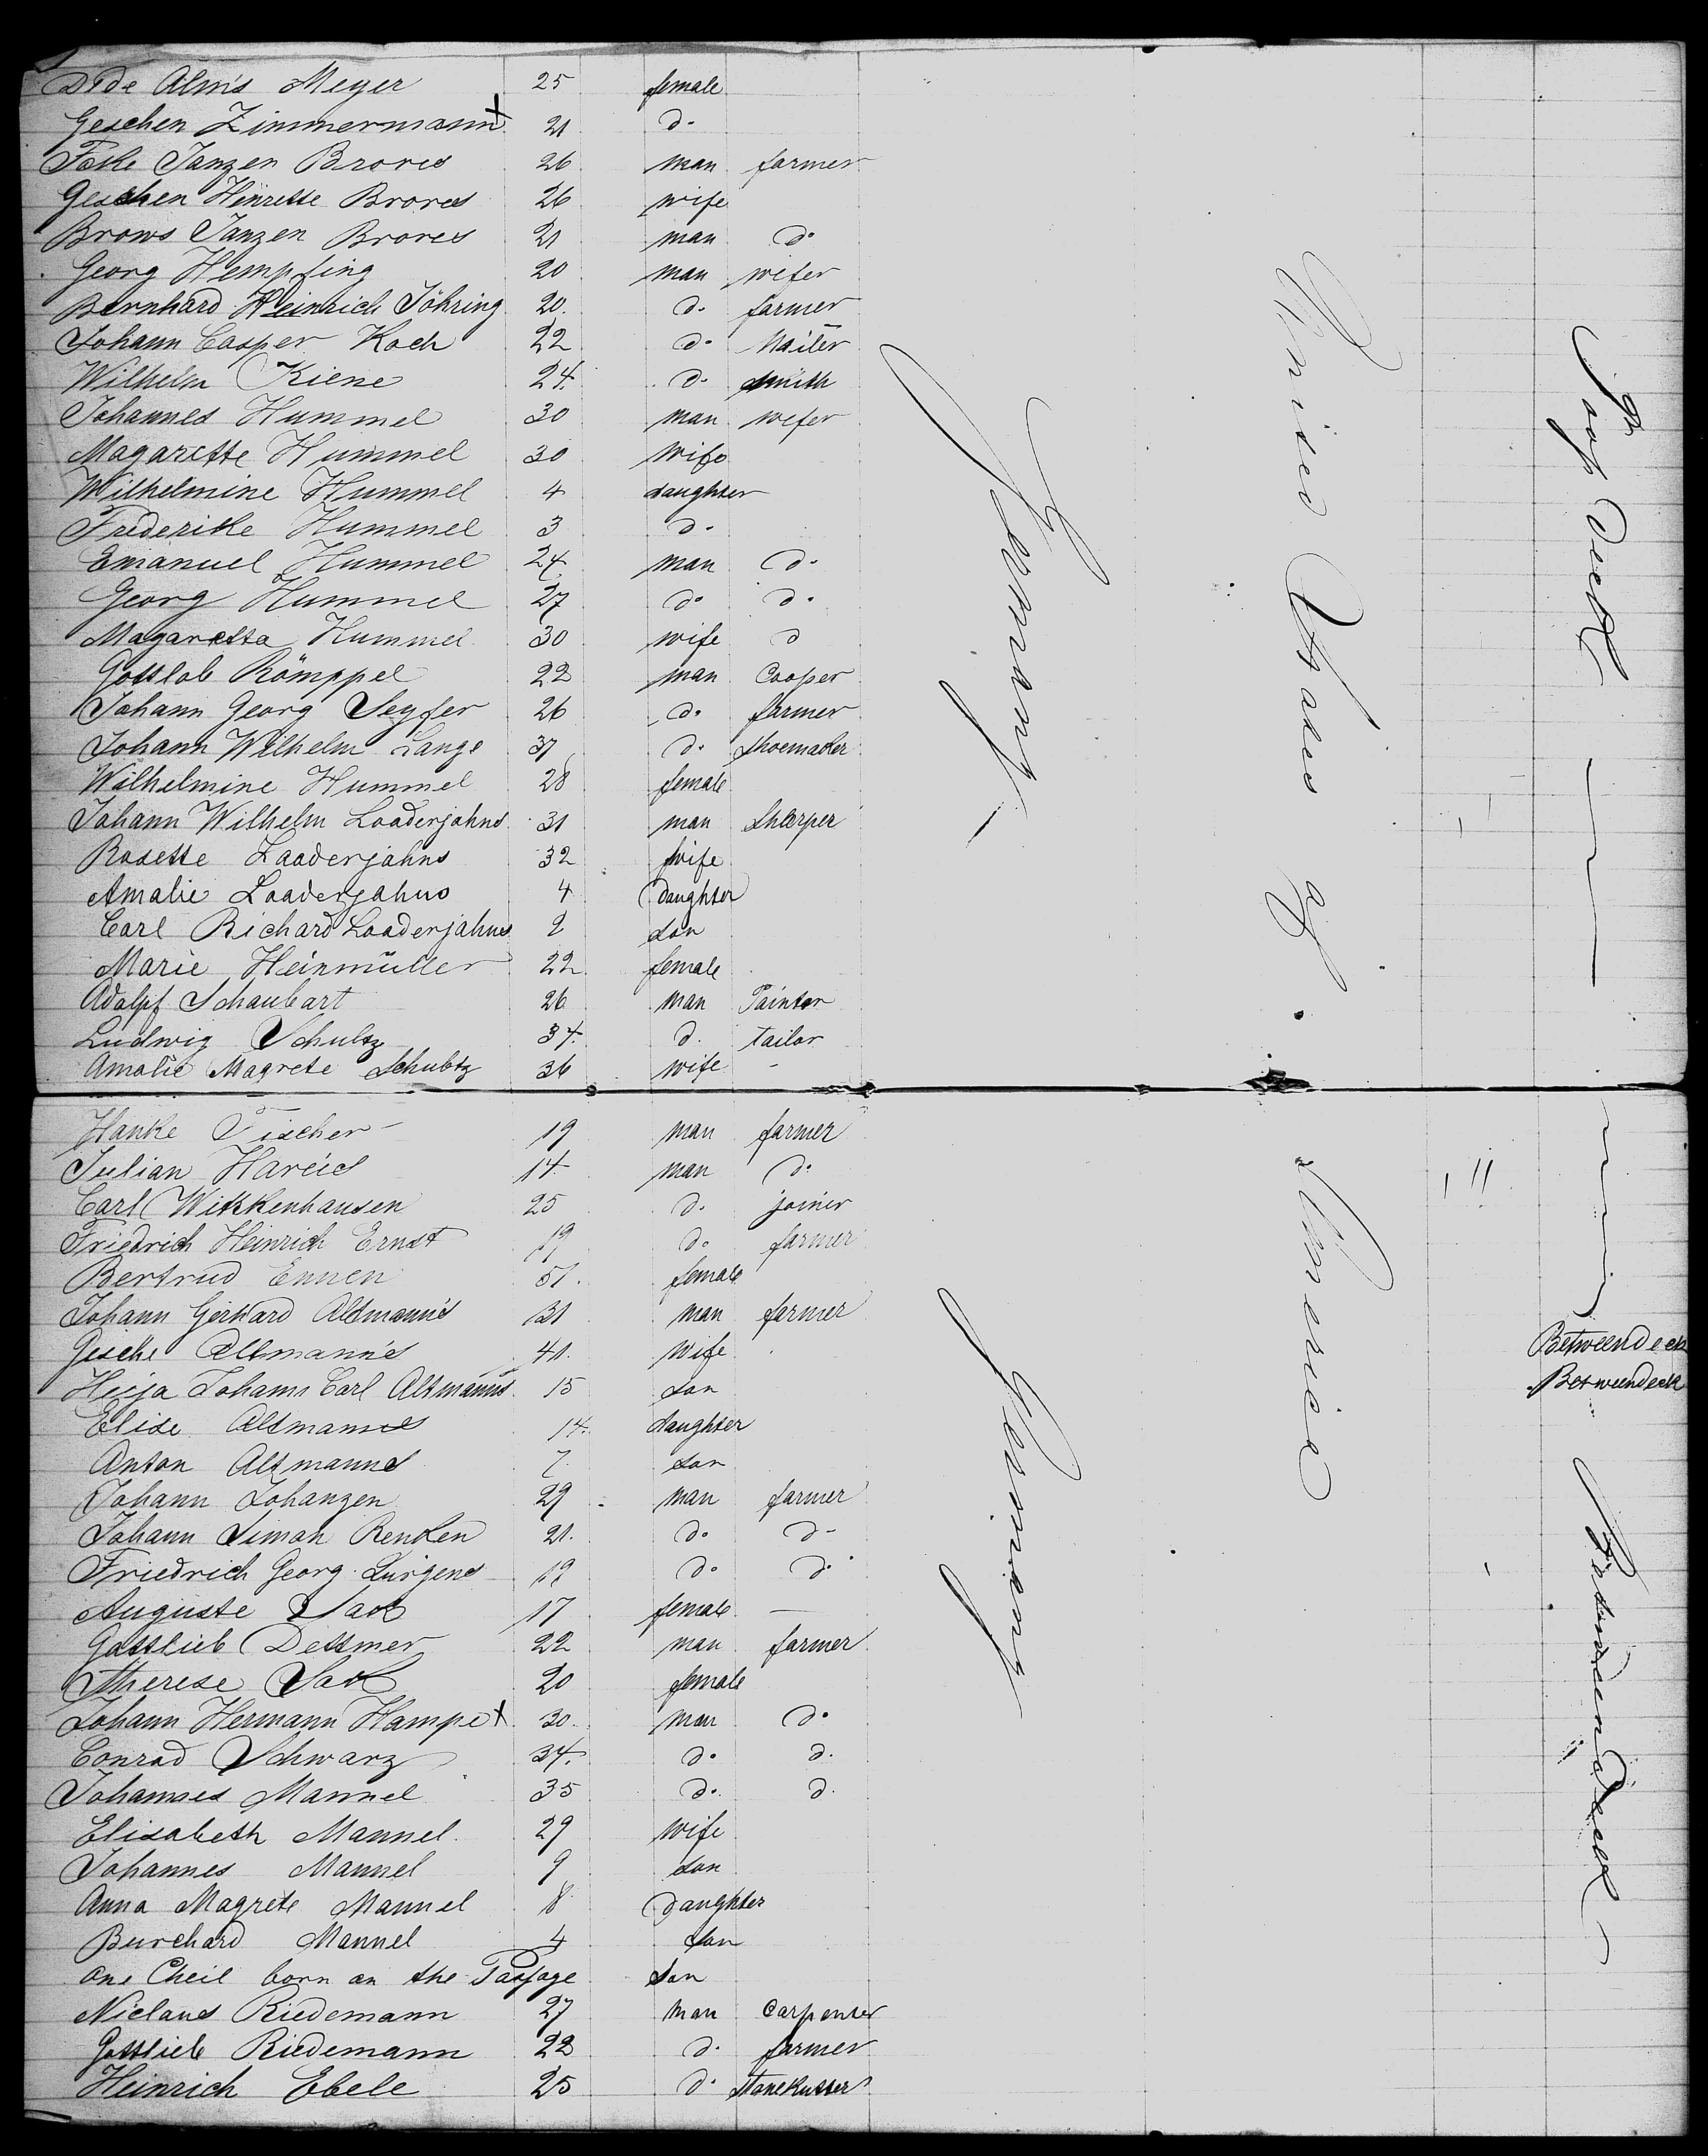 Dide Alm's Meyer 25 female
Geschen Zimmermann X 21 d°
Foke Janzen Brores 26 man farmer
Geschen Hinrette Brores 26 wife
Brows Janzen Brores 21 man d°
Georg Hempfing 20 man wefer
Bernhard Heinrich Jöhring 20. d° farmer
Johann Casper Koch 22 d° Mailer
Wilhelm Kiene 24. d° smith
Johannes Hummel 30 man wefer
Magarette Hummel 30 wife
Wilhelmine Hummel 4 daughter
Frederike Hummel 3 d°
Emanuel Hummel 24 man d°
Georg Hummel 27 d° d°
Magaretta Hummel 30 wife d
Gottlob Römppel 22 man Cooper
Johann Georg Seyfer 26 d° farmer
Johann Wilhelm Lange 37 d° shoemaker
Wilhelmine Hummel 28 female
Johann Wilhelm Laaderjahns 31 man
Rosette Laaderjahns 32 wife
Amalie Laaderjahns 4 Daughter
Carl Richard Laaderjahns 2 son
Marie Heinmüller 22 female
Adolpf Schaubart 26 man Painter
Ludwig Schultz 34. d. tailor
Amalie Magrete Schultz 36 wife -
Germany
United States of America
on deck
Hanke Tischer 19 man farmer
Julian Hareis 14 man d°
Carl Wittkenhausen 25 d. joiner
Friedrich Heinrich Ernst 19 d° farmer
Bertrud Ennen 51. female
Johann Gerhard Altmann's 31 man farmer
Gesche Altmann's 41. wife
Heija Johann Carl Altmanns 15 son
Elise Altmanns 14. daughter
Anton Altmanns 7 son
Johann Johanzen 29 man farmer
Johann Simon Renken 21. d° d°
Friedrich Georg Lürgens 19 d° d°
Auguste Sack 17 female —
Gottlieb Dettmer 22 man farmer
Therese Sack 20 female
Johann Hermann Hampe X 30. man d°
Conrad Schwarz 34. d° d.
Johannes Mannel 35 d° d.
Elisabeth Mannel 29 wife
Johannes Mannel 9 son
Anna Magrete Mannel 8 Daughter
Burchard Mannel 4 son
One Cheil born an the Passage son
Niclaus Riedemann 27 man Carpenter
Gottlieb Riedemann 22 d. farmer
Heinrich Ebele 25 d° stonekutter
Germany
Betweendeck
Betweendeck
Betweendeck